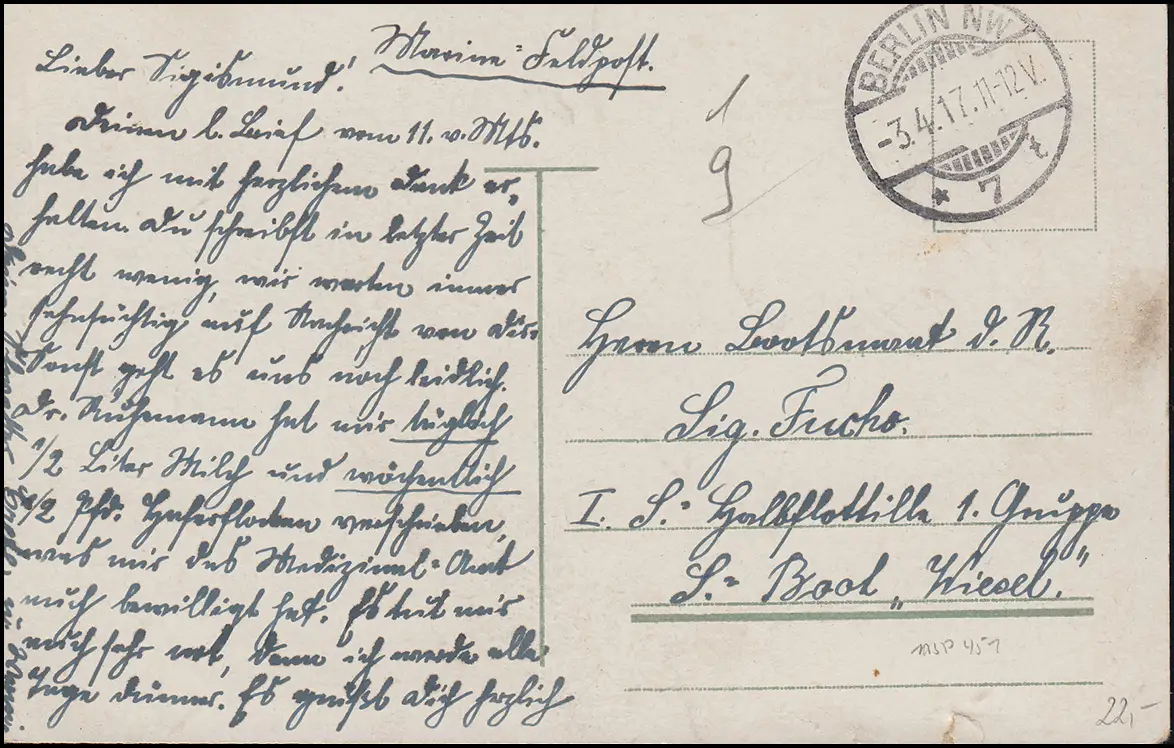 Marine-Feldpost.
Lieber Sigismund!
Deinen l. Brief vom 11. v. Mts.
habe ich mit herzlichem Dank er-
halten. Du schreibst in letzter Zeit
recht wenig, wir warten immer
sehnsüchtig auf Nachricht von Dir.
Sonst geht es uns noch leidlich.
Dr. Ruhemann hat mir täglich
1/2 Liter Milch und wöchentlich
1/2 Pfd. Haferflocken verschrieben,
was mir das Medizinal-Amt
auch bewilligt hat. Es tut mir
auch sehr not, denn ich werde alle
Tage dünner. Es grüßt Dich herzlich
Dein
BERLIN NW
-3.4.17.11-12V.
* 7 t
1
9
Herrn Bootsmaat d. R.
Sig. Fuchs.
I. S.-Halbflottille 1. Gruppe
S.-Boot „Wiesel."
MSP 451
22,-